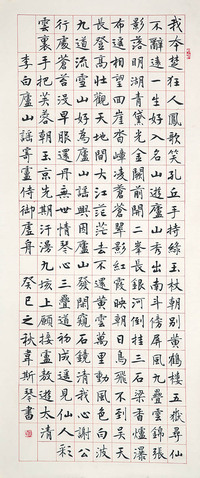 我本楚狂人鳳歌笑孔丘手持綠玉杖朝別黃鶴樓五嶽尋仙
不辭遠一生好入名山遊廬山秀出南斗傍屏風九疊雲錦張
影落明湖青黛光金闕前開二峯長銀河倒挂三石梁香爐瀑
布遙相望回崖沓嶂凌蒼蒼翠影紅霞映朝日鳥飛不到吳天
長登高壯觀天地間大江茫茫去不還黃雲萬里動風色白波
九道流雪山好為廬山謠興因廬山發閑窺石鏡清我心謝公
行處蒼苔沒早服還丹無世情琴心三疊道初成遙見仙人彩
雲裏手把芙蓉朝玉京先期汗漫九垓上願接盧敖遊太清
李白廬山謠寄盧侍御虛舟 癸巳之秋韋斯琴書